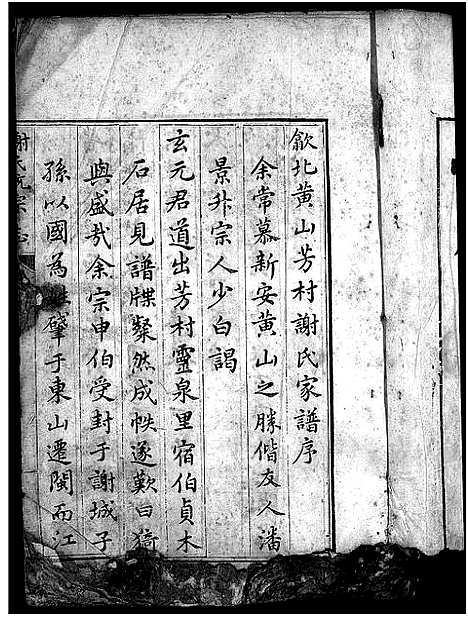 歙北黄山芳村謝氏家譜序
余常慕新安黄山之勝偕友人潘
景升宗人少白謁
玄元君道出芳村靈泉里宿伯貞木
石居見譜牒粲然成帙遂歎曰猗
與盛哉余宗申伯受封于謝城子
孫以國為姓肇于東山遷閩而江
謝氏統宗志